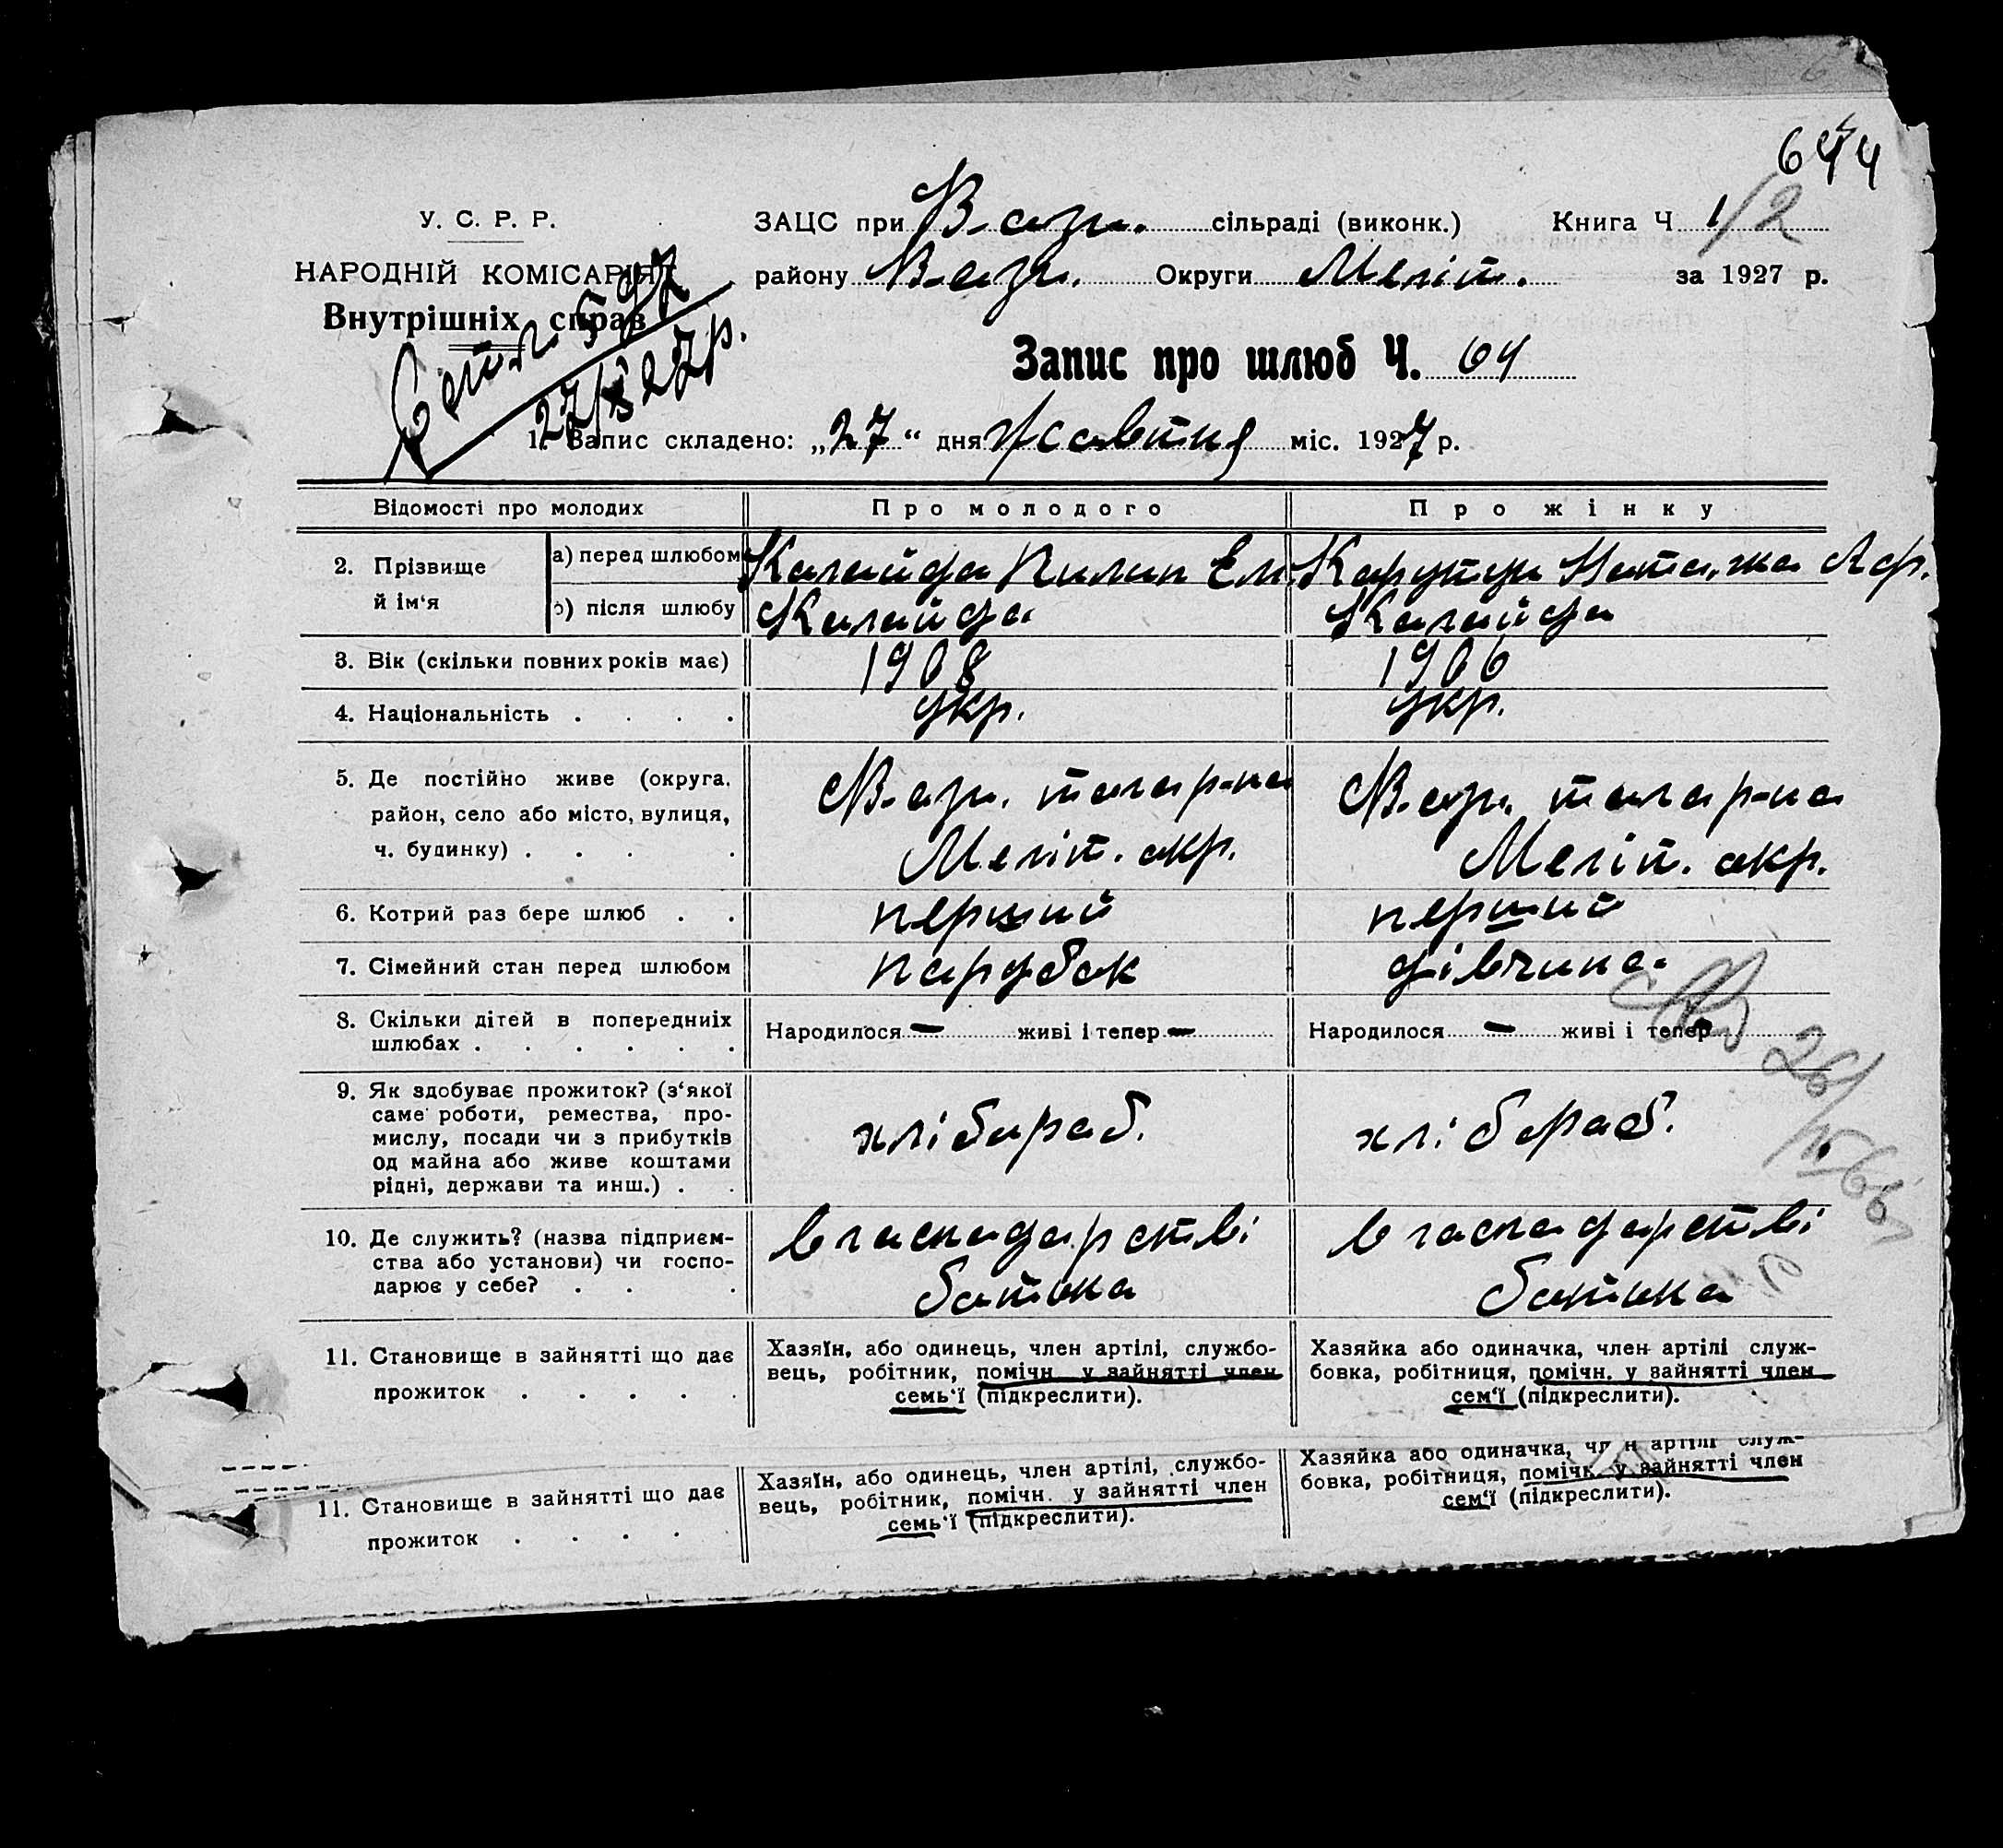 644
У. С. Р. Р.
ЗАЦС при сільраді (виконк.) Книга Ч 1/2
НАРОДНІЙ КОМІСАРІЯТ району Округи Меліт. за 1927 р.
Внутрішніх справ
27/X 27 р.
Запис про шлюб Ч. 64
1. Запис складено: „27“ дня жовтня міс. 1927 р.
Відомості про молодих Про молодого Про жінку
2. Прізвище й ім‘я
а) перед шлюбом Калайда Пилип Ем. Наталка Аф.
б) після шлюбу Калайда Калайда
3. Вік (скільки повних років має) 1908 1906
4. Національність . . . . укр. укр.
5. Де постійно живе (округа, район, село або місто, вулиця, ч. будинку) . . . .
Меліт. окр. Меліт. окр.
6. Котрий раз бере шлюб . . перший перший
7. Сімейний стан перед шлюбом парубок дівчина
8. Скільки дітей в попередниіх шлюбах . . . . . .
Народилося — живі і тепер — Народилося — живі і тепер
26/
66
9. Як здобуває прожиток? (з‘якої
саме роботи, ремества, про-
мислу, посади чи з прибутків
од майна або живе коштами
рідні, держави та инш.) . .
хлібороб. хлібороб.
10. Де служить? (назва підприєм-
ства або установи) чи госпо-
дарює у себе? . . .
в господарстві в господарстві
батька батька
11. Становище в зайнятті що дає
прожиток . . . . .
Хазяїн, або одинець, член артілі, службо-
вець, робітник, помічн. у зайнятті член
семь‘ї (підкреслити).
Хазяйка або одиначка, член артілі служ-
бовка, робітниця, помічн. у зайнятті член
сем‘ї (підкреслити).
11. Становище в зайнятті що дає
прожиток . . . .
Хазяїн, або одинець, член артілі, службо-
вець, робітник, помічн. у зайнятті член
семь‘ї (підкреслити).
Хазяйка або одиначка, член артілі служ-
бовка, робітниця, помічн. у зайнятті член
сем‘ї (підкреслити).